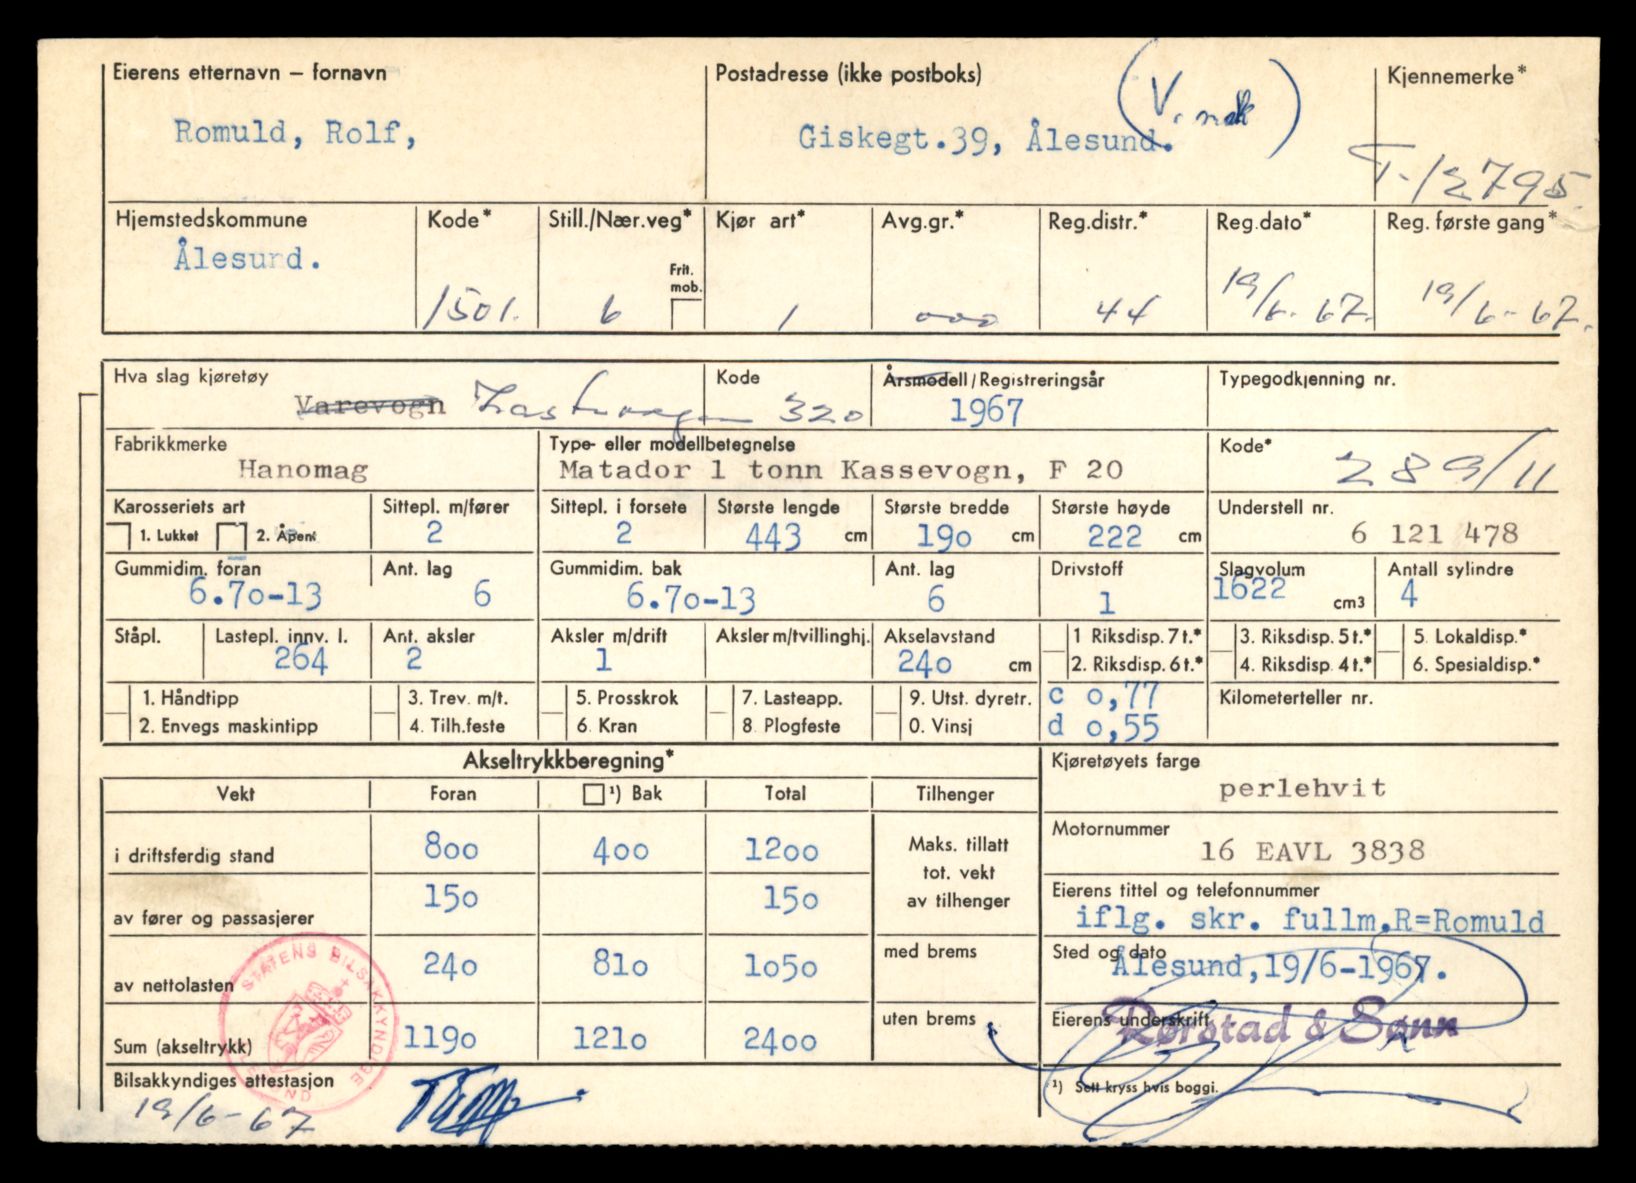 Eierens etternavn – fornavn
Romuld, Rolf,
Postadresse (ikke postboks)
Giskegt.39, Ålesund.
Kjennemerke*
T-12795
Hjemstedskommune
Ålesund.
Kode*
1501.
Still./Nær.veg*
6
Frit. mob.
Kjør art*
1
Avg.gr.*
000
Reg.distr.*
44
Reg.dato*
19/6-67.
Reg. første gang*
19/6-67.
Hva slag kjøretøy
Varevogn Lastevogn
Kode
320
Årsmodell/Registreringsår
1967
Typegodkjenning nr.
Fabrikkmerke
Hanomag
Type- eller modellbetegnelse
Matador 1 tonn Kassevogn, F 20
Kode*
289/11
Karosseriets art
1. Lukket 2. Åpent
Sittepl. m/fører
2
Sittepl. i forsete
2
Største lengde
443 cm
Største bredde
190 cm
Største høyde
222 cm
Understell nr.
6 121 478
Gummidim. foran
6.70-13
Ant. lag
6
Gummidim. bak
6.70-13
Ant. lag
6
Drivstoff
1
Slagvolum
1622 cm3
Antall sylindre
4
Ståpl.
Lastepl. innv. l.
264
Ant. aksler
2
Aksler m/drift
1
Aksler m/tvillinghj.
Akselavstand
240 cm
1 Riksdisp. 7 t.*
2. Riksdisp. 6 t.*
3. Riksdisp. 5 t.*
4. Riksdisp. 4 t.*
5. Lokaldisp.*
6. Spesialdisp.*
1. Håndtipp
2. Envegs maskintipp
3. Trev. m/t.
4. Tilh.feste
5. Prosskrok
6. Kran
7. Lasteapp.
8 Plogfeste
9. Utst. dyretr.
0. Vinsj
c 0,77
d 0,55
Kilometerteller nr.
Akseltrykkberegning*
Vekt Foran ¹) Bak Total Tilhenger
i driftsferdig stand 800 400 1200
av fører og passasjerer 150 150
av nettolasten 240 810 1050
Sum (akseltrykk) 1190 1210 2400
Maks. tillatt
tot. vekt
av tilhenger
med brems
uten brems
Kjøretøyets farge
perlehvit
Motornummer
16 EAVL 3838
Eierens tittel og telefonnummer
iflg. skr. fullm.R=Romuld
Sted og dato
Ålesund,19/6-1967.
Eierens underskrift
Rørstad & Sønn
¹) Sett kryss hvis boggi.
Bilsakkyndiges attestasjon
19/6-67
STATENS BILSAKKYNDIGE